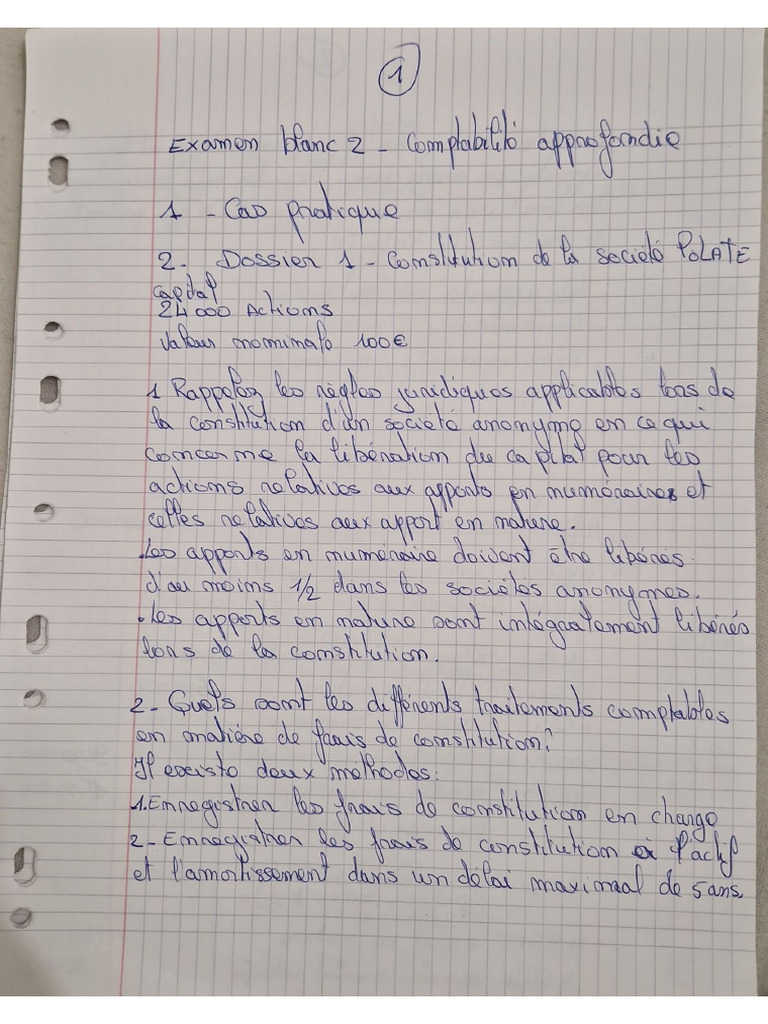 1
Examen blanc 2 - Comptabilité approfondie
1 - Cas pratique
2. Dossier 1 - Constitution de la société POLATE
capital
24000 Actions
Valeur nominale 100€
1 Rappelez les règles juridiques applicables lors de
la constitution d'un societé anonyme en ce qui
concerne la libération du capital pour les
actions relatives aux apports en numéraires et
celles relatives aux apport en nature.
. Les apports en numéraire doivent être libérés
d'au moins 1/2 dans les sociétés anonymes.
. Les apports en nature sont intégralement libérés
lors de la constitution.
2 - Quels sont les différents traitements comptables
en matière de frais de constitution?
Il existe deux methodes:
1. Enregistrer les frais de constitution en charge
2 - Enregistrer les frais de constitution à l'actif
et l'amortissement dans un délai maximal de 5 ans.